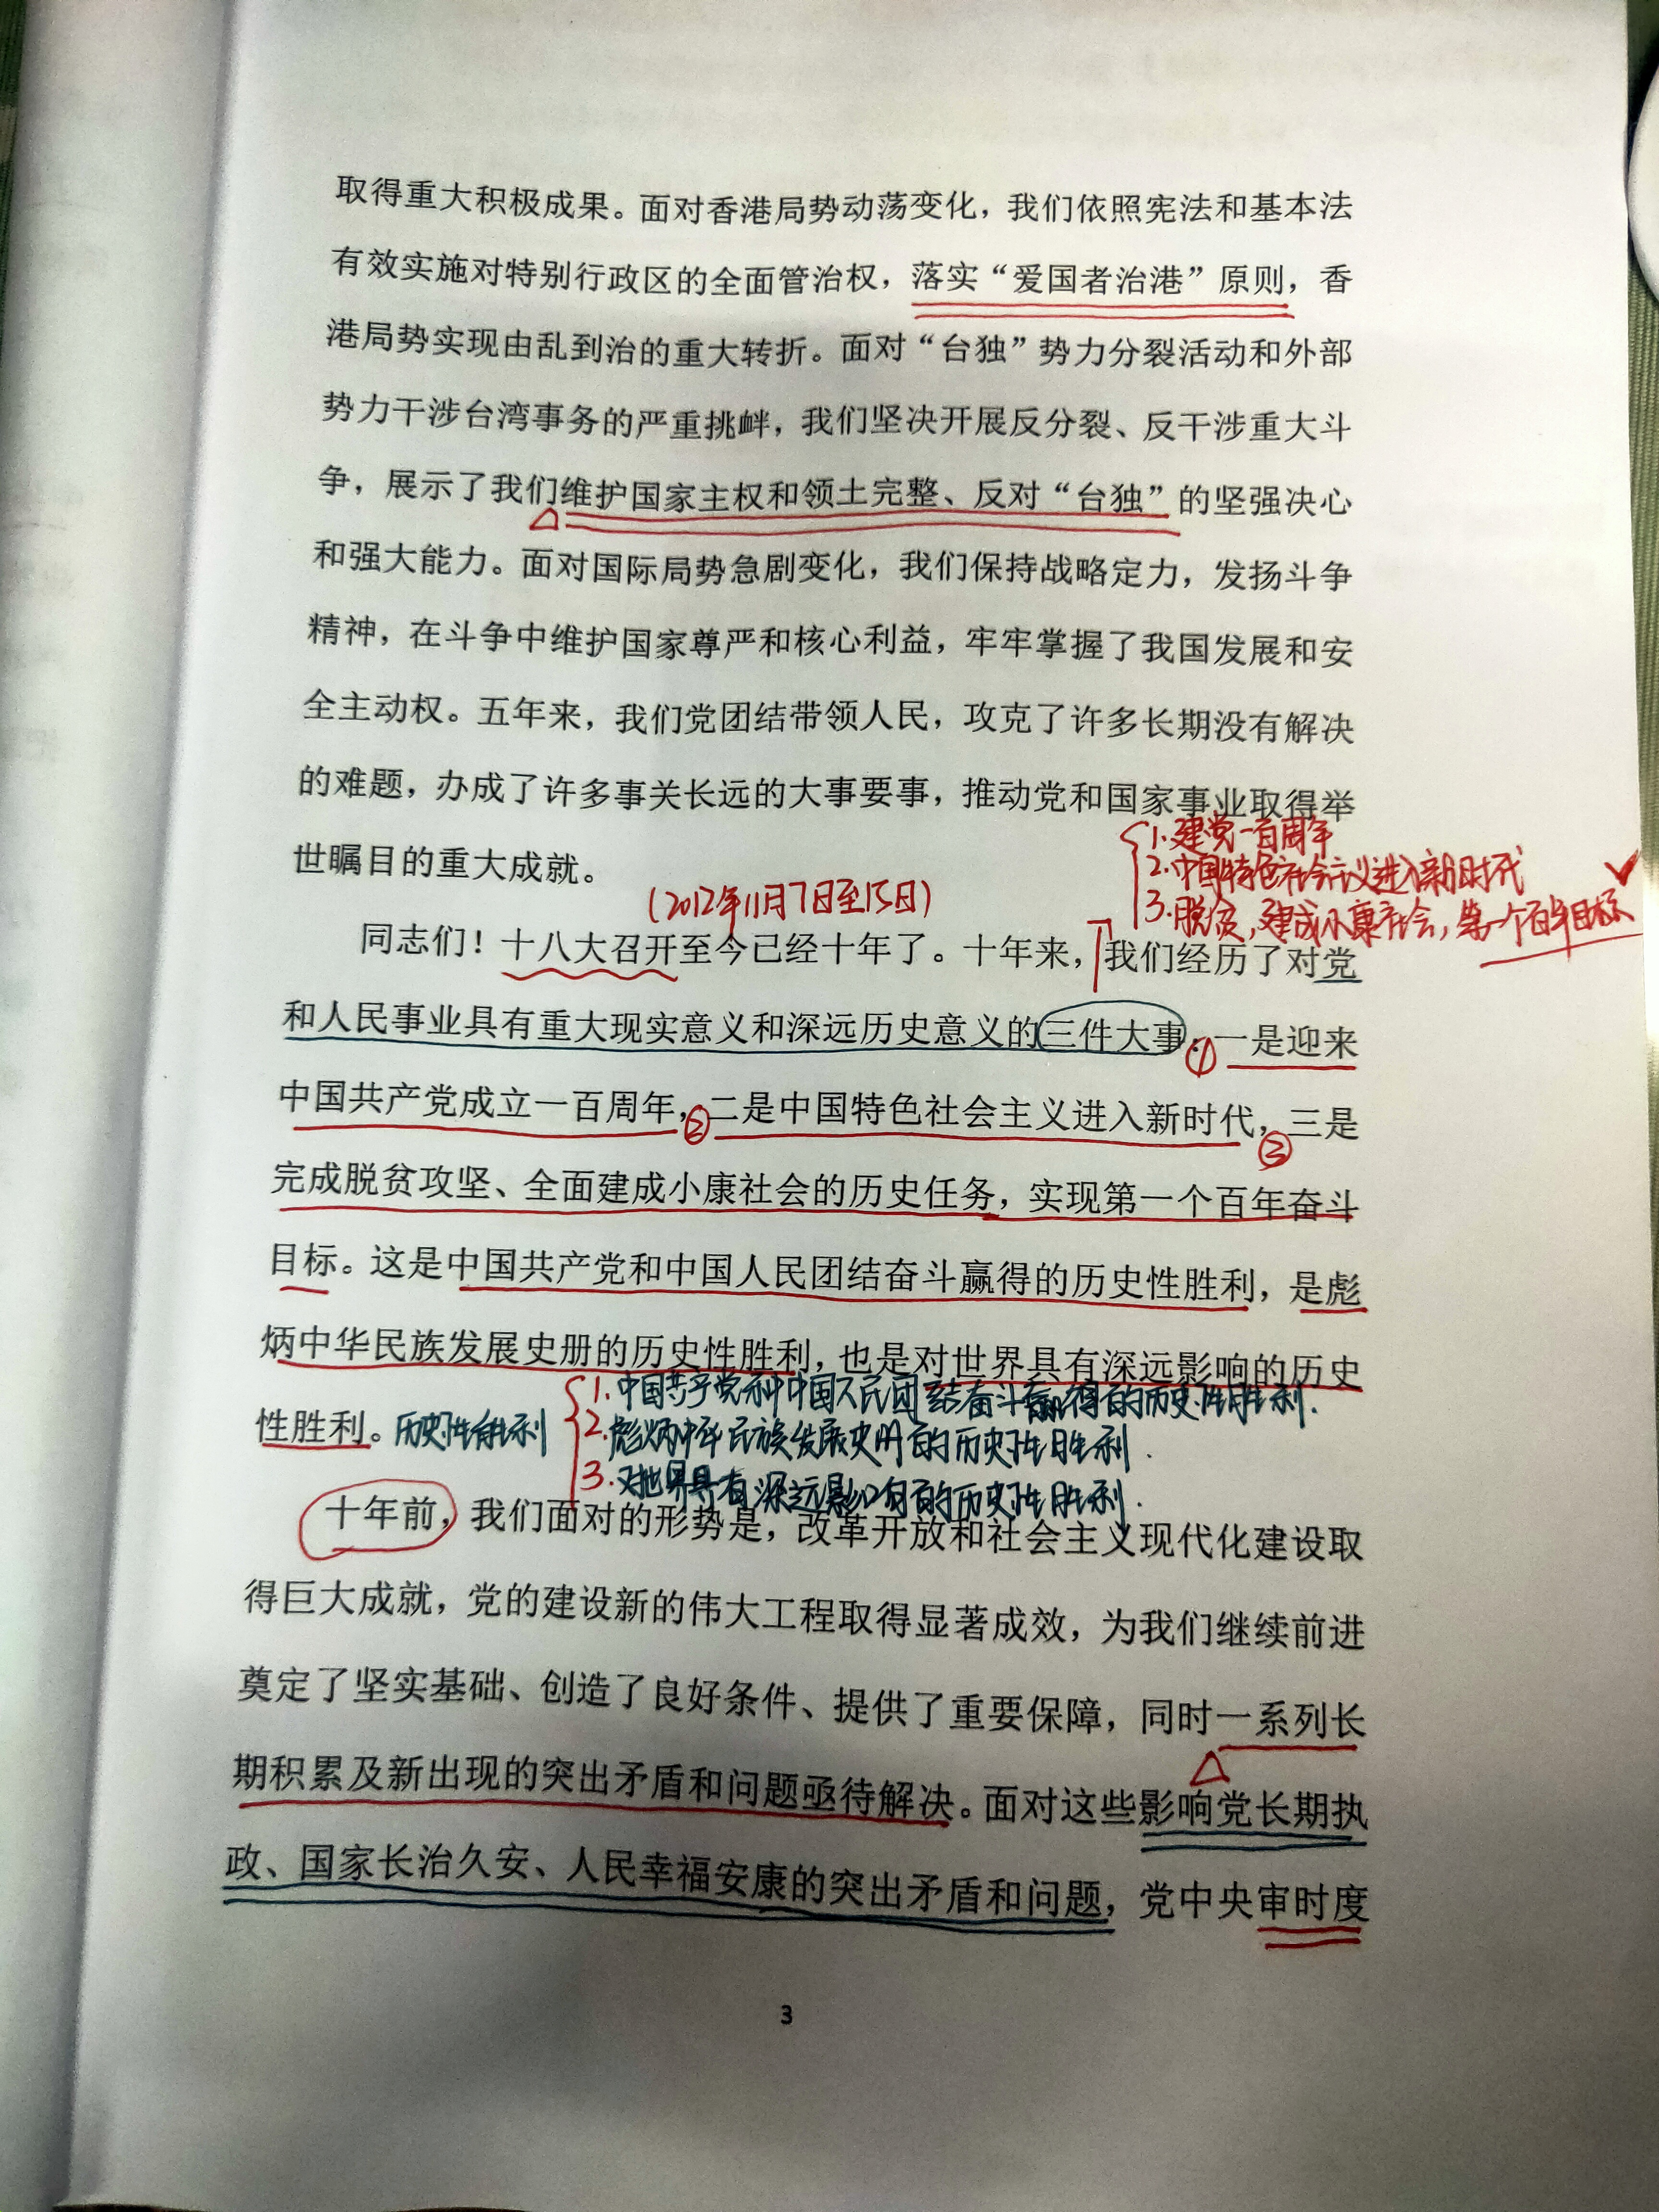 取得重大积极成果。面对香港局势动荡变化，我们依照宪法和基本法
有效实施对特别行政区的全面管治权，落实“爱国者治港”原则，香
港局势实现由乱到治的重大转折。面对“台独”势力分裂活动和外部
势力干涉台湾事务的严重挑衅，我们坚决开展反分裂、反干涉重大斗
争，展示了我们维护国家主权和领土完整、反对“台独”的坚强决心
和强大能力。面对国际局势急剧变化，我们保持战略定力，发扬斗争
精神，在斗争中维护国家尊严和核心利益，牢牢掌握了我国发展和安
全主动权。五年来，我们党团结带领人民，攻克了许多长期没有解决
的难题，办成了许多事关长远的大事要事，推动党和国家事业取得举
世瞩目的重大成就。
1.建党一百周年
2.中国特色社会主义进入新时代
3.脱贫，建成小康社会，第一个百年目标
（2012年11月7日至15日）
同志们！十八大召开至今已经十年了。十年来，我们经历了对党
和人民事业具有重大现实意义和深远历史意义的三件大事：①一是迎来
中国共产党成立一百周年，②二是中国特色社会主义进入新时代，③三是
完成脱贫攻坚、全面建成小康社会的历史任务，实现第一个百年奋斗
目标。这是中国共产党和中国人民团结奋斗赢得的历史性胜利，是彪
炳中华民族发展史册的历史性胜利，也是对世界具有深远影响的历史
性胜利。历史性胜利
1.中国共产党和中国人民团结奋斗赢得的历史性胜利.
2.彪炳中华民族发展史册的历史性胜利.
3.对世界具有深远影响的历史性胜利.
十年前，我们面对的形势是，改革开放和社会主义现代化建设取
得巨大成就，党的建设新的伟大工程取得显著成效，为我们继续前进
奠定了坚实基础、创造了良好条件、提供了重要保障，同时一系列长
期积累及新出现的突出矛盾和问题亟待解决。面对这些影响党长期执
政、国家长治久安、人民幸福安康的突出矛盾和问题，党中央审时度
3